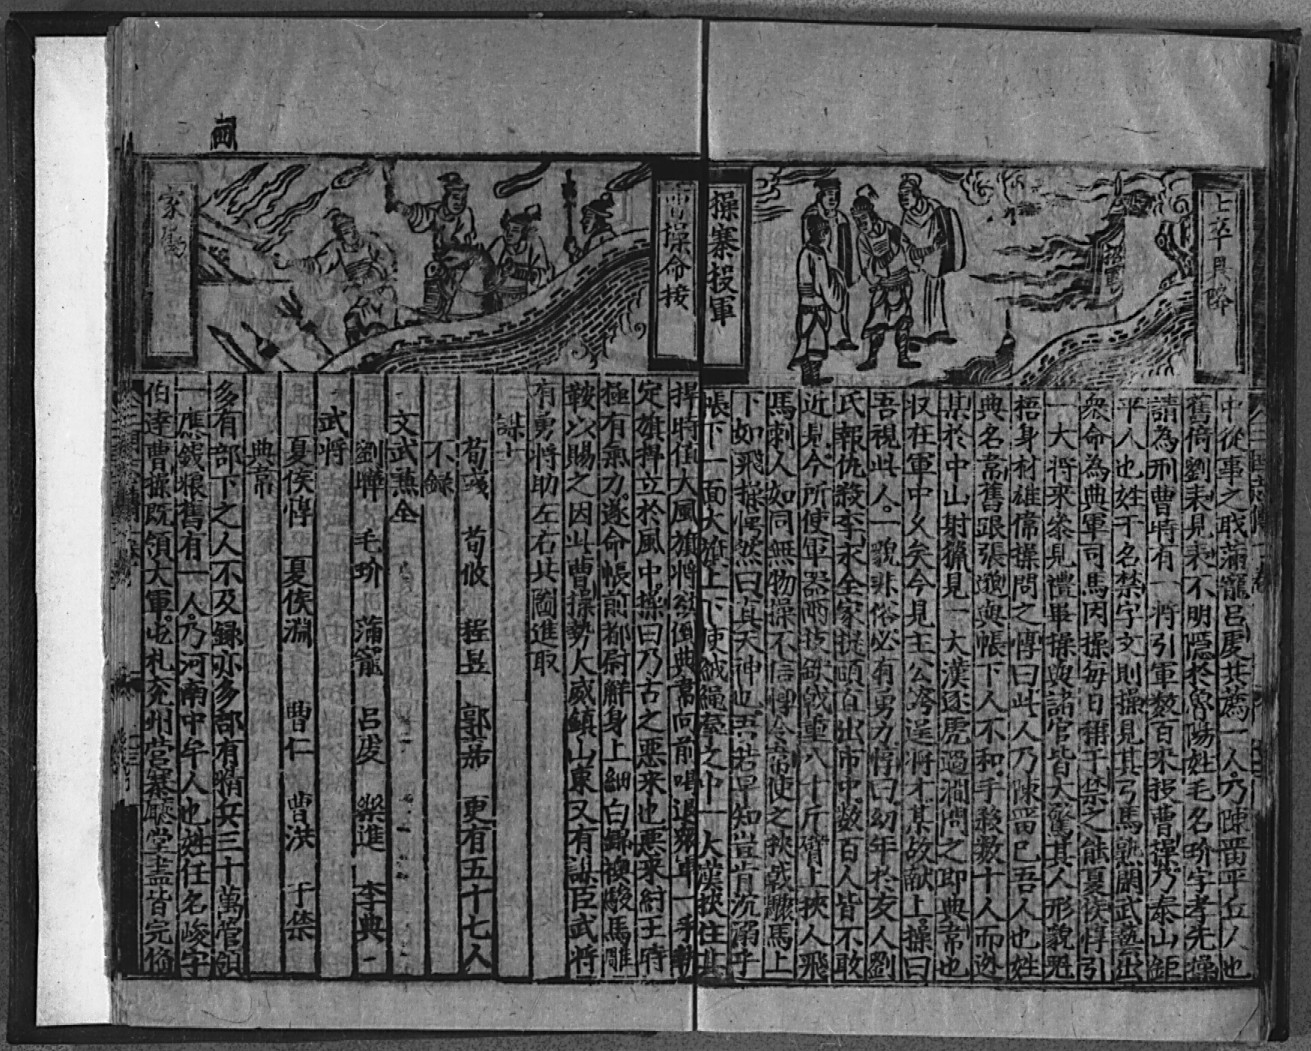 操寨投軍
中從事之職滿寵呂虔共薦一人乃陳留平丘人也
舊倚劉表見表不明隱於魯陽姓毛名玠字孝先操
請為刑曹時有一將引軍數百來投曹操乃泰山鉅
平人也姓于名禁字文則操見其弓馬熟閑武藝出
衆命為典軍司馬因操每日稱于禁之能夏侯惇引
一大將來參見禮畢操與諸官皆大驚其人形貌魁
梧身材雄偉操問之惇曰此人乃陳留已吾人也姓
典名韋舊跟張邈與帳下人不和手殺數十人而逃
某於中山射獵見一大漢逐虎過澗問之即典韋也
収在軍中久矣今見主公誇逞將才某故献上操曰
吾視此人一貌非俗必有勇力惇曰幼年於友人劉
氏報仇殺李永全家提頭首出市中數百人皆不敢
近見今所使軍器兩枝鉄戟重八十斤臂上挾人飛
馬刺人如同無物操不信惇令韋使之挾戟驟馬上
下如飛操愕然曰真天神也吾若早知豈肯沉溺乎
帳下一面大旗上下使絨繩拴之中一大漢挾住其
曹操命接
家屬
桿時值大風旗將欲倒典韋向前喝退衆軍一手執
定旗捍立於風中操曰乃古之惡來也惡來紂王時
極有氣力遂命帳前都尉觧身上細白錦襖駿馬雕
鞍以賜之因此曹操勢大威鎮山東又有謀臣武將
有勇將助左右共圖進取
謀士
荀彧 荀攸 程昱 郭嘉 更有五十七人
不錄
文武兼全
劉曄 毛玠 滿寵 呂虔 樂進 李典
武將
夏侯惇 夏侯淵 曹仁 曹洪 于禁
典韋
多有部下之人不及録亦多部有精兵三十萬管領
一應錢糧舊有一人乃河南中牟人也姓任名峻字
伯達曹操既領大軍屯札兗州營寨廳堂盡皆完備